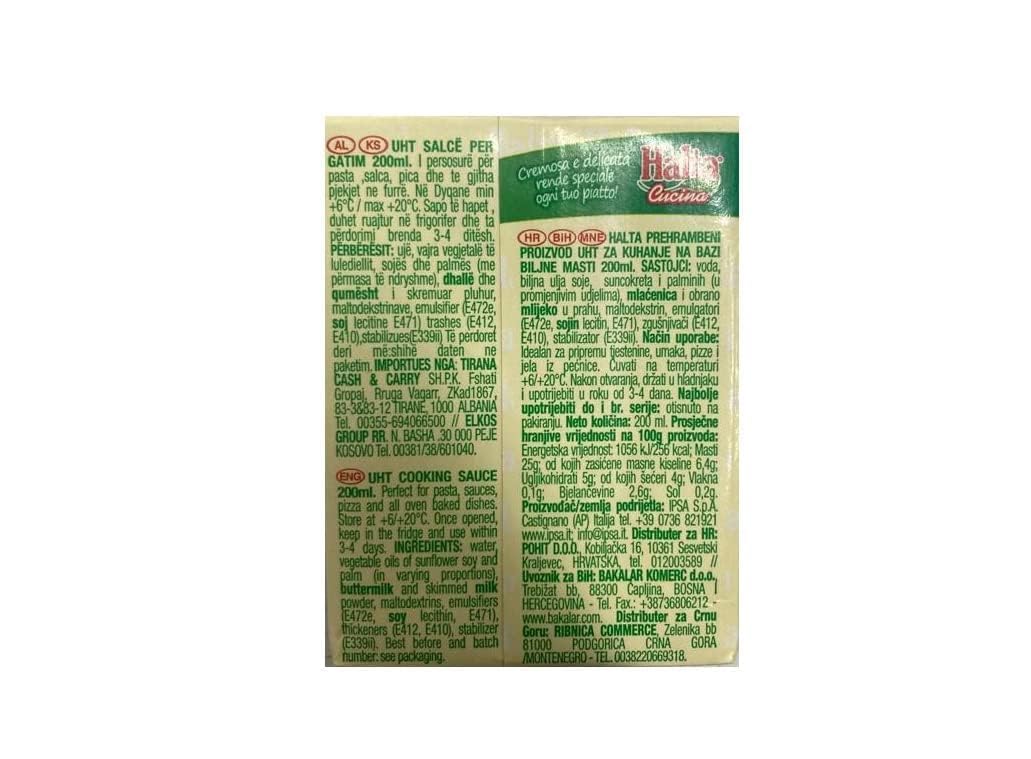 AL KS UHT SALCË PER
GATIM 200ml. I persosurë për
pasta ,salca, pica dhe te gjitha
pjekjet ne furrë. Në Dyqane min
+6°C / max +20°C. Sapo të hapet ,
duhet ruajtur në frigorifer dhe ta
përdorimi brenda 3-4 ditësh.
PËRBËRËSIT: ujë, vajra vegjetalë të
lulediellit, sojës dhe palmës (me
përmasa të ndryshme), dhallë dhe
qumësht i skremuar pluhur,
maltodekstrinave, emulsifier (E472e,
soj lecitine E471) trashes (E412,
E410),stabilizues(E339ii) Të perdoret
deri më:shihë daten ne
paketim. IMPORTUES NGA: TIRANA
CASH & CARRY SH.P.K. Fshati
Gropaj, Rruga Vagarr, ZKad1867,
83-3&83-12 TIRANE, 1000 ALBANIA
Tel. 00355-694066500 // ELKOS
GROUP RR. N. BASHA .30 000 PEJE
KOSOVO Tel. 00381/38/601040.
ENG UHT COOKING SAUCE
200ml. Perfect for pasta, sauces,
pizza and all oven baked dishes.
Store at +6/+20°C. Once opened,
keep in the fridge and use within
3-4 days. INGREDIENTS: water,
vegetable oils of sunflower soy and
palm (in varying proportions),
buttermilk and skimmed milk
powder, maltodextrins, emulsifiers
(E472e, soy lecithin, E471),
thickeners (E412, E410), stabilizer
(E339ii). Best before and batch
number: see packaging.
Cremosa e delicata
rende speciale
ogni tuo piatto!
Halta
Cucina
HR BiH MNE HALTA PREHRAMBENI
PROIZVOD UHT ZA KUHANJE NA BAZI
BILJNE MASTI 200ml. SASTOJCI: voda,
biljna ulja soje, suncokreta i palminih (u
promjenjivim udjelima), mlaćenica i obrano
mlijeko u prahu, maltodekstrin, emulgatori
(E472e, sojin lecitin, E471), zgušnjivači (E412,
E410), stabilizator (E339ii). Način uporabe:
Idealan za pripremu tjestenine, umaka, pizze i
jela iz pećnice. Čuvati na temperaturi
+6/+20°C. Nakon otvaranja, držati u hladnjaku
i upotrijebiti u roku od 3-4 dana. Najbolje
upotrijebiti do i br. serije: otisnuto na
pakiranju. Neto količina: 200 ml. Prosječne
hranjive vrijednosti na 100g proizvoda:
Energetska vrijednost: 1056 kJ/256 kcal; Masti
25g; od kojih zasićene masne kiseline 6,4g;
Ugljikohidrati 5g; od kojih šećeri 4g; Vlakna
0,1g; Bjelančevine 2,6g; Sol 0,2g.
Proizvođač/zemlja podrijetla: IPSA S.p.A.
Castignano (AP) Italija tel. +39 0736 821921
www.ipsa.it; info@ipsa.it. Distributer za HR:
POHIT D.O.O., Kobiljačka 16, 10361 Sesvetski
Kraljevec, HRVATSKA, tel. 012003589 //
Uvoznik za BiH: BAKALAR KOMERC d.o.o.,
Trebižat bb, 88300 Čapljina, BOSNA I
HERCEGOVINA - Tel. Fax.: +38736806212 -
www.bakalar.com. Distributer za Crnu
Goru: RIBNICA COMMERCE, Zelenika bb
81000 PODGORICA CRNA GORA
/MONTENEGRO - TEL. 0038220669318.